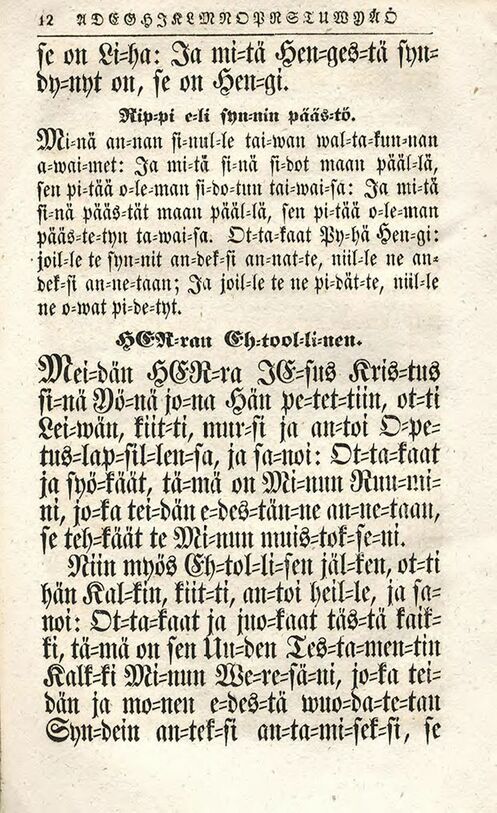 12 A D E G H J K L M N O P R S T U W Y Ä Ö
se on Li⸗ha: Ja mi⸗tä Hen⸗ges⸗tä syn⸗
dy⸗nyt on, se on Hen⸗gi.
Rip⸗pi e⸗li syn⸗nin pääs⸗tö.
Mi⸗nä an⸗nan si⸗nul⸗le tai⸗wan wal⸗ta⸗kun⸗nan
a⸗wai⸗met: Ja mi⸗tä si⸗nä si⸗dot maan pääl⸗lä,
sen pi⸗tää o⸗le⸗man si⸗do⸗tun tai⸗wai⸗sa: Ja mi⸗tä
si⸗nä pääs⸗tät maan pääl⸗lä, sen pi⸗tää o⸗le⸗man
pääs⸗te⸗tyn ta⸗wai⸗sa. Ot⸗ta⸗kaat Py⸗hä Hen⸗gi:
joil⸗le te syn⸗nit an⸗dek⸗si an⸗nat⸗te, niil⸗le ne an⸗
dek⸗si an⸗ne⸗taan; Ja joil⸗le te ne pi⸗dät⸗te, niil⸗le
ne o⸗wat pi⸗de⸗tyt.
HER⸗ran Eh⸗tool⸗li⸗nen.
Mei⸗dän HER⸗ra JE⸗sus Kris⸗tus
si⸗nä Yö⸗nä jo⸗na Hän pe⸗tet⸗tiin, ot⸗ti
Lei⸗wän, kiit⸗ti, mur⸗si ja an⸗toi O⸗pe⸗
tus⸗lap⸗sil⸗len⸗sa, ja sa⸗noi: Ot⸗ta⸗kaat
ja syö⸗käät, tä⸗mä on Mi⸗nun Ruu⸗mi⸗
ni, jo⸗ka tei⸗dän e⸗des⸗tän⸗ne an⸗ne⸗taan,
se teh⸗käät te Mi⸗nun muis⸗tok⸗se⸗ni.
Niin myös Eh⸗tol⸗li⸗sen jäl⸗ken, ot⸗ti
hän Kal⸗kin, kiit⸗ti, an⸗toi heil⸗le, ja sa⸗
noi: Ot⸗ta⸗kaat ja juo⸗kaat täs⸗tä kaik⸗
ki, tä⸗mä on sen Uu⸗den Tes⸗ta⸗men⸗tin
Kalk⸗ki Mi⸗nun We⸗re⸗sä⸗ni, jo⸗ka tei⸗
dän ja mo⸗nen e⸗des⸗tä wuo⸗da⸗te⸗tan
Syn⸗dein an⸗tek⸗si an⸗ta⸗mi⸗sek⸗si, se